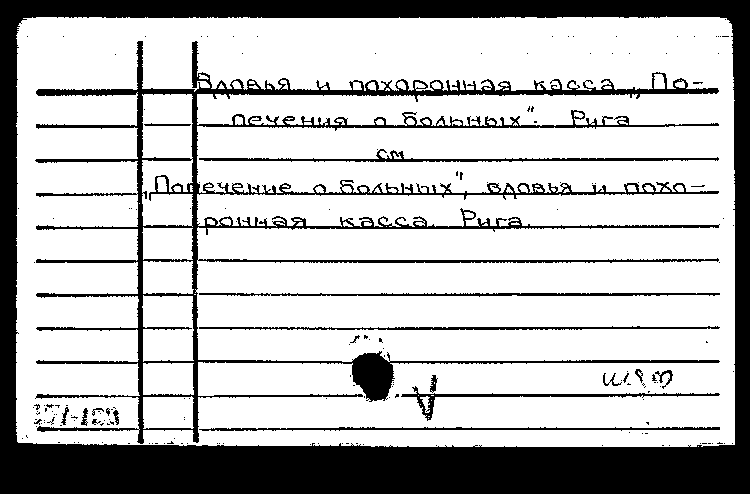 Вдовья и похоронная касса „По-
печения о больных". Рига
см.
„Попечение о больных", вдовья и похо-
ронная касса. Рига.